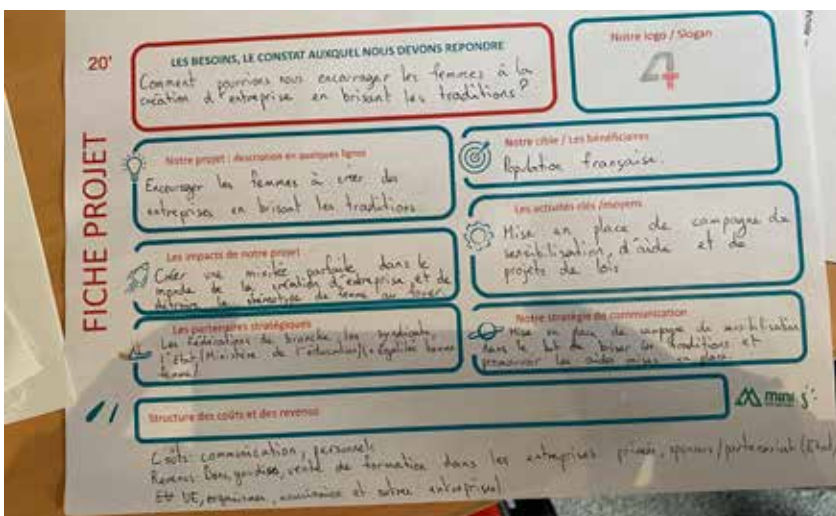 20'
FICHE PROJET
LES BESOINS, LE CONSTAT AUXQUEL NOUS DEVONS REPONDRE
Comment pourrions nous encourager les femmes à la
création d'entreprise en brisant les traditions?
Notre logo / Slogan
Notre projet : description en quelques lignes
Encourager les femmes à créer des
entreprises en brisant les traditions
Notre cible / Les bénéficiaires
Population française.
Les impacts de notre projet
Créer une mixité parfaite dans le
monde de la création d'entreprise et de
détruire le stéréotype de femme au foyer
Les activités clés /moyens
Mise en place de campagne de
sensibilisation, d'aide et de
projets de lois
Les partenaires stratégiques
Les Fédérations de branche, les syndicats,
l'Etat (Ministère de l'éducation/ égalité homme
femme)
Notre stratégie de communication
Mise en place de campagne de sensibilisation
dans le but de briser les traditions et
promouvoir les aides mises en place
Structure des coûts et des revenus
mini
Coûts: communication, personnels
Revenus: Dons, vente de formation dans les entreprises privées, sponsors/partenariat (Etat,
UE, organismes, et autres entreprises)